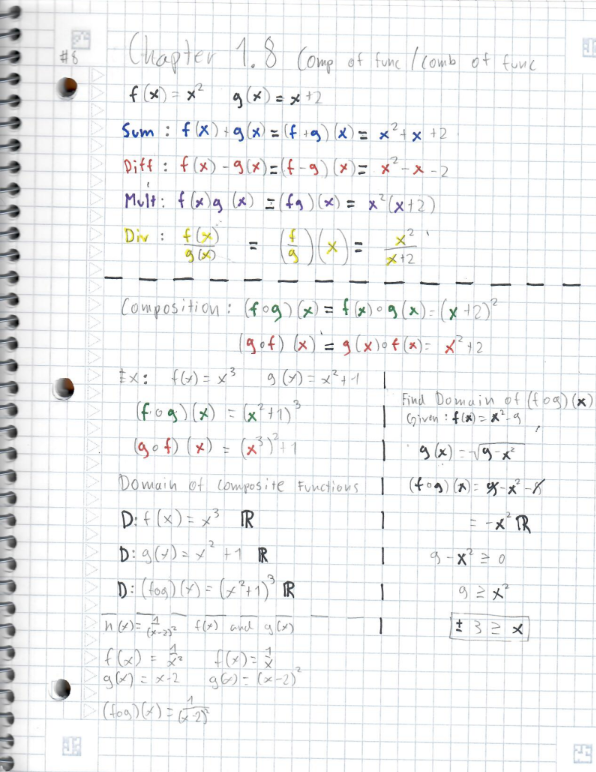 #8
Chapter 1.8 Comp of func/comb of func
f(x) = x² g(x) = x+2
Sum : f(x)+g(x) = (f+g)(x) = x²+x+2
Diff : f(x) - g(x) = (f-g)(x) = x²-x-2
Mult : f(x)g(x) = (fg)(x) = x²(x+2)
Div : f(x)/g(x) = (f/g)(x) = x²/x+2
Composition : (f∘g)(x) = f(x)∘g(x) = (x+2)²
(g∘f)(x) = g(x)∘f(x) = x²+2
Ex: f(x) = x³ g(x) = x²+1
(f∘g)(x) = (x²+1)³
(g∘f)(x) = (x³)²+1
Domain of Composite Functions
D: f(x) = x³ ℝ
D: g(x) = x² +1 ℝ
D: (fog)(x) = (x²+1)³ ℝ
h(x) = 1/(x-2)² f(x) and g(x)
f(x) = 1/x² f(x) = 1/x
g(x) = x-2 g(x) = (x-2)²
(fog)(x) = 1/(x-2)²
Find Domain of (fog)(x)
Given : f(x) = x²-9,
g(x) = √9-x²
(fog)(x) = 9-x²-9
= -x² ℝ
9-x² ≥ 0
9 ≥ x²
± 3 ≥ x